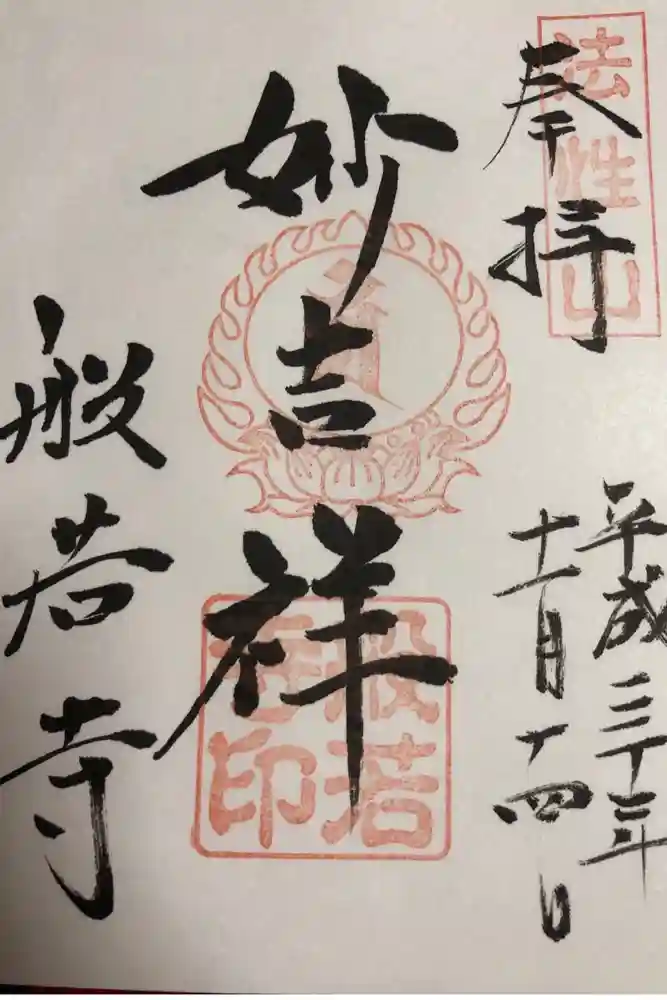 法性山
奉拝
平成三十年
十一月十四日
妙吉祥
般若
寺印
般若寺